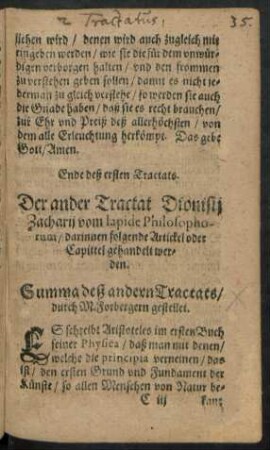 2 Tractatus,
35.
lichen wird / denen wird auch zugleich mit
eingeben werden / wie sie die für dem vnwür-
digen verborgen halten / vnd den frommen
zuverstehen geben sollen / damit es nicht je-
derman zu gleich verstehe / so werden sie auch
die Gnade haben / daß sie es recht brauchen /
zur Ehr vnd Preiß deß allerhöchsten / von
dem alle Erleuchtung herkömpt. Das gebe
Gott / Amen.
Ende deß ersten Tractats.
Der ander Tractat Dionisij
Zacharij vom lapide Philosopho-
rum / darinnen folgende Artickel oder
Capittel gehandelt wer-
den.
Summa deß andern Tractats /
durch M. Forbergern gestellet.
ES schreibt Aristoteles im ersten Buch
seiner Physica / daß man mit denen /
welche die principia verneinen / das
ist / den ersten Grund vnd Fundament der
Künste / so allen Menschen von Natur be-
C iij kant